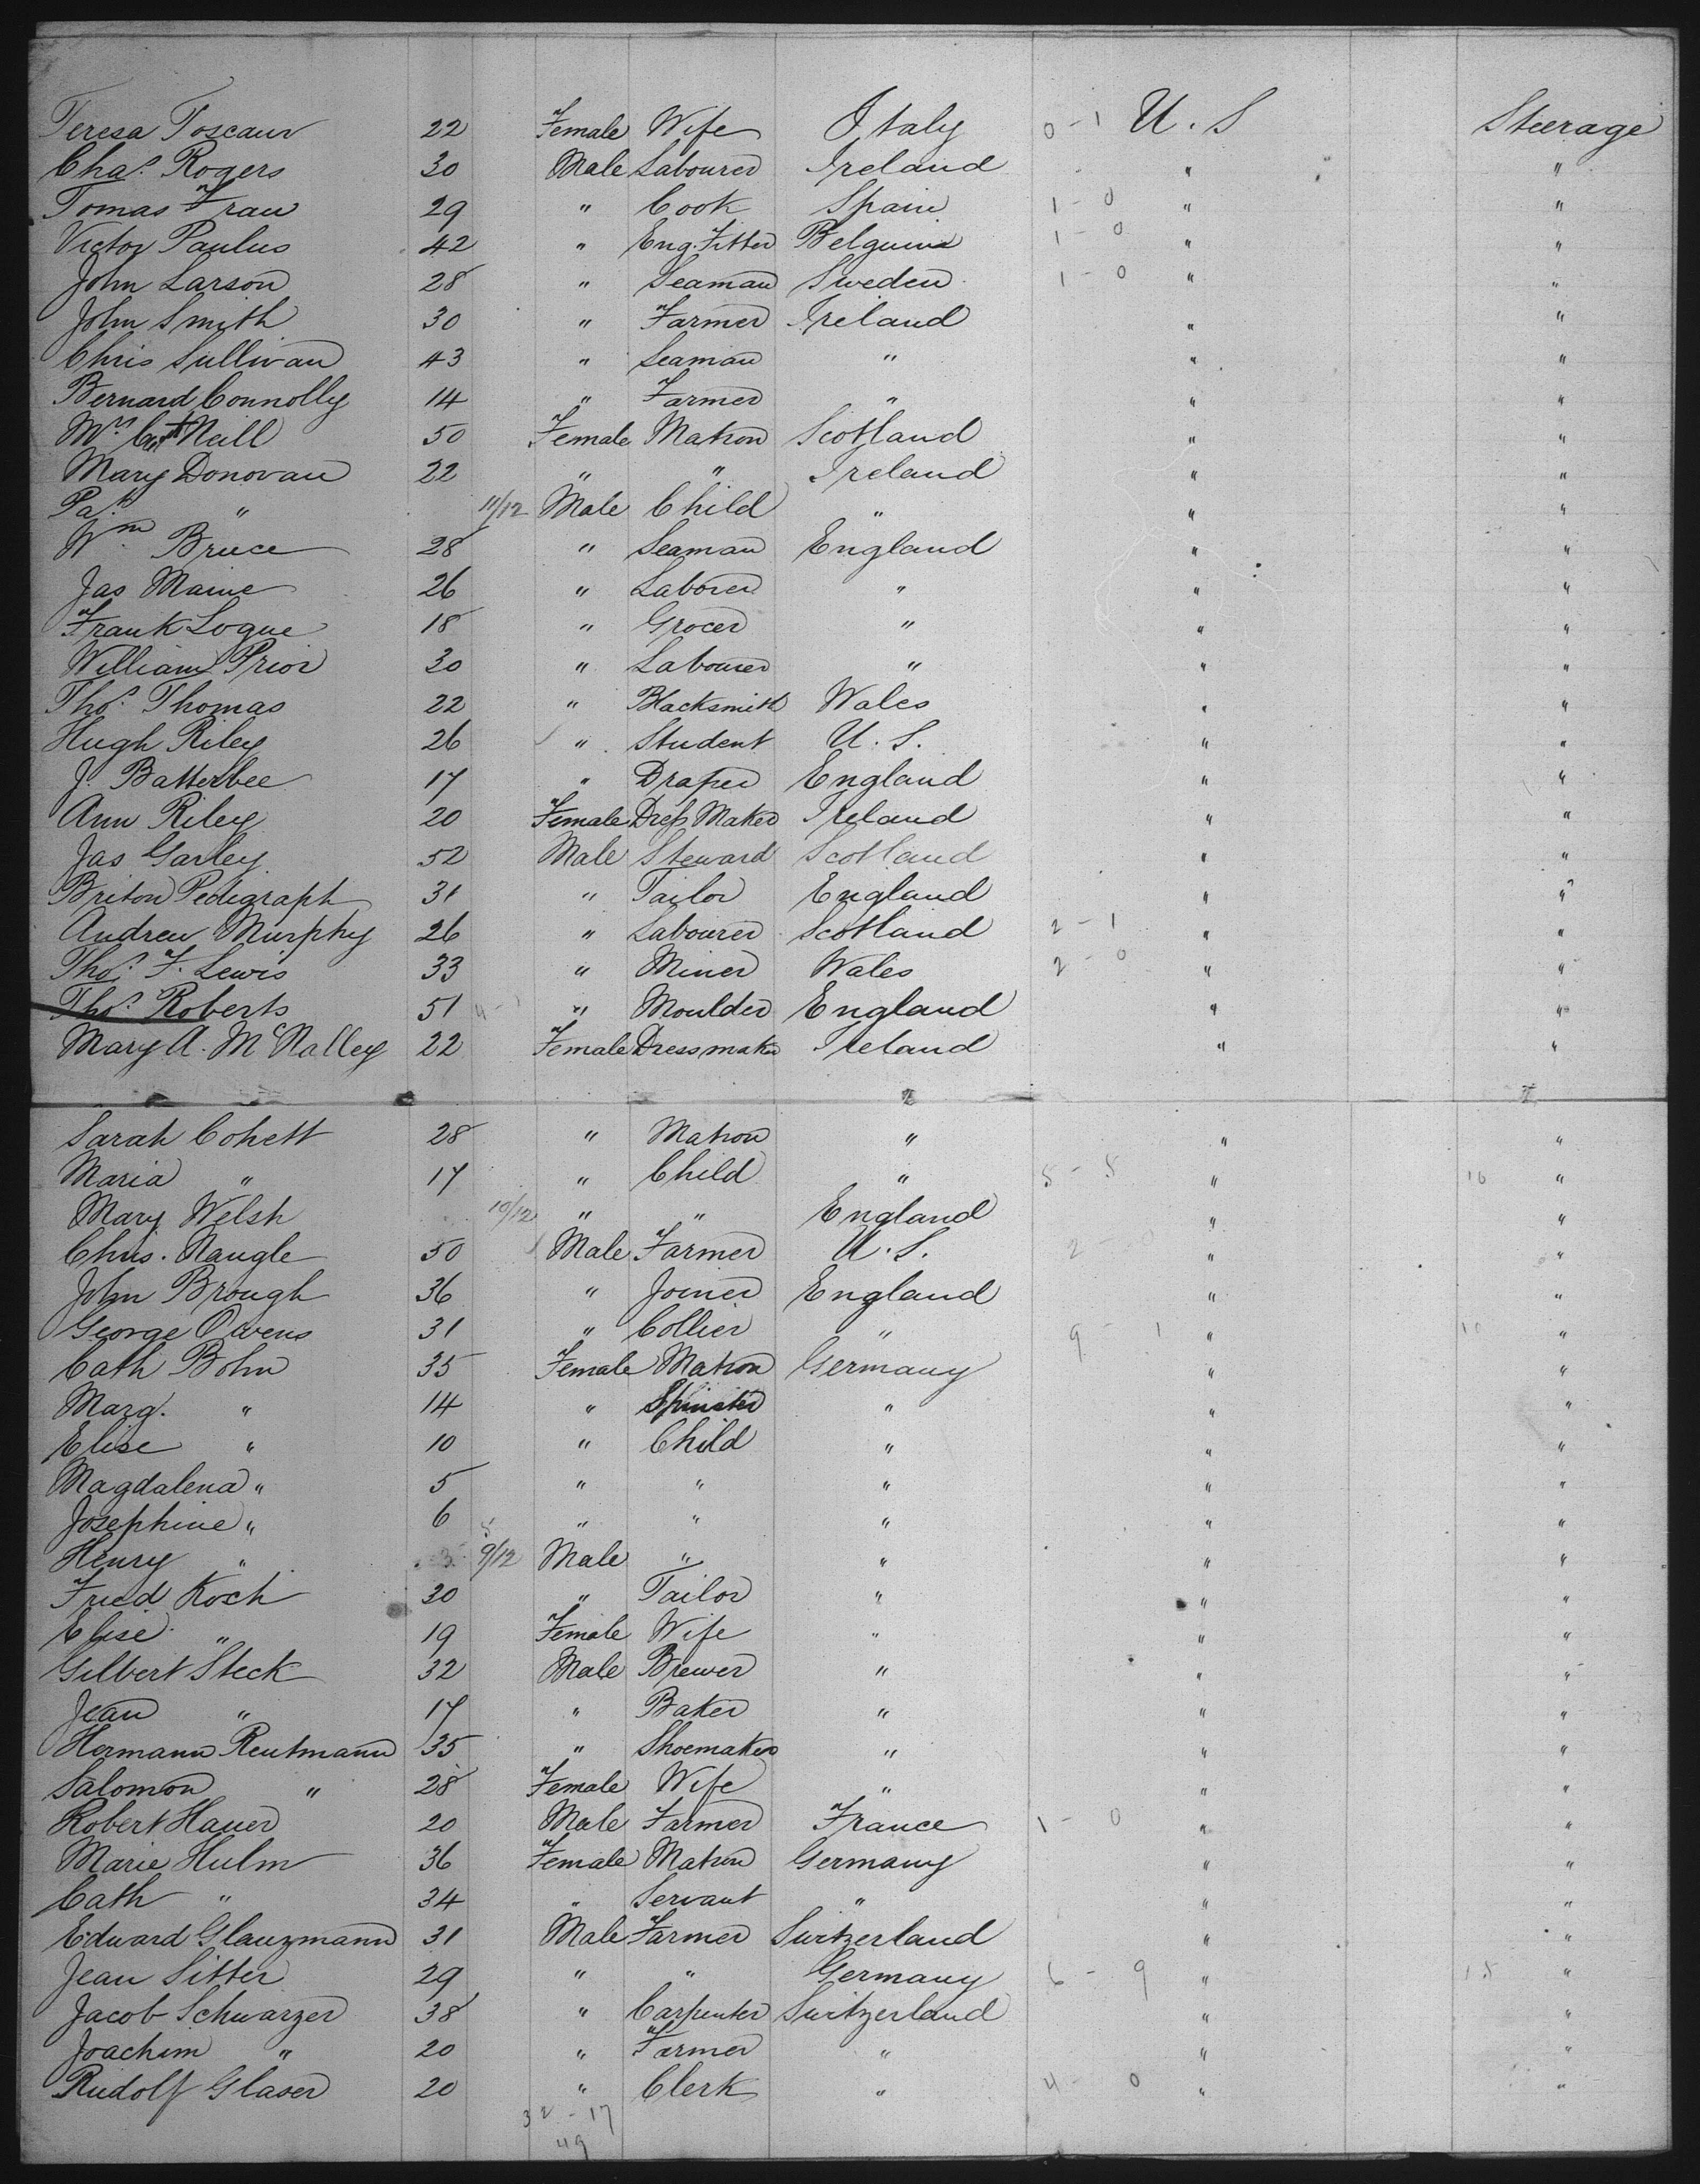 Teresa Toscaur 22 Female Wife Italy 0 - 1 U. S Steerage
Chas. Rogers 30 Male Labourer Ireland " "
Tomas Frau 29 " Cook Spain 1 - 0 " "
Victor Paulus 42 " Eng. Fitter Belguim 1 - 0 " "
John Larson 28 " Seaman Sweden 1 - 0 " "
John Smith 30 " Farmer Ireland " "
Chris Sullivan 43 " Seaman " " "
Bernard Connolly 14 " Farmer " " "
Mrs. Neill 50 Female Matron Scotland " "
Mary Donovan 22 " " Ireland " "
Pat. " 11/12 Male Child " " "
Wm. Bruce 28 " Seaman England " "
Jas Maine 26 " Laborer " " "
Frank Logue 18 " Grocer " " "
William Prior 30 " Labourer " " "
Thos. Thomas 22 " Blacksmith Wales " "
Hugh Riley 26 " Student U. S. " "
J. Batterbee 17 " Draper England " "
Ann Riley 20 Female Dress Maker Ireland " "
Jas Garley 52 Male Steward Scotland " "
Briton Pedigraph 31 " Tailor England " "
Andrew Murphy 26 " Labourer Scotland 2 - 1 " "
Thos. F. Lewis 33 " Miner Wales 2 - 0 " "
Thos. Roberts 51 4 - " Moulder England " "
Mary A. McNalley 22 Female Dressmaker Ireland " "
Sarah Cohett 28 " Matron " " "
Maria " 17 " Child " 5 - 5 " 10 "
Mary Welsh 10/12 " " England " "
Chris. Naugle 50 Male Farmer U. S. 2 - " "
John Brough 36 " Joiner England " "
George Owens 31 " Collier " 9 - 1 " 10 "
Cath Bohn 35 Female Matron Germany " "
Marg. " 14 " Spinster " " "
Elise " 10 " Child " " "
Magdalena " 5 " " " " "
Josephine " 6 " " " " "
Henry " 9/12 Male " " " "
Fried Koch 30 " Tailor " " "
Elise " 19 Female Wife " " "
Gilbert Steck 32 Male Brewer " " "
Jean " 17 " Baker " " "
Hermann Reutmann 35 " Shoemaker " " "
Salomon " 28 Female Wife " " "
Robert Hauer 20 Male Farmer France 1 - 0 " "
Marie Hulm 36 Female Matron Germany " "
Cath " 34 " Servant " " "
Edward Glanzmann 31 Male Farmer Switzerland " "
Jean Sitter 29 " " Germany 6 - 9 " 15 "
Jacob Schwarzer 38 " Carpenter Switzerland " "
Joachim " 20 " Farmer " " "
Rudolf Glaser 20 " Clerk " 4 - 0 " "
32 - 17
49